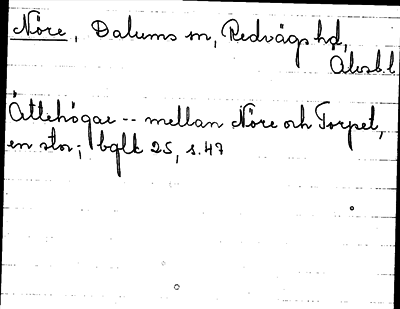 Nöre, Dalums sn, Redvägs hd,
Älvsb.l
Ättehögar -- mellan Nöre och Torpet,
en stor; bglt 25, s. 47